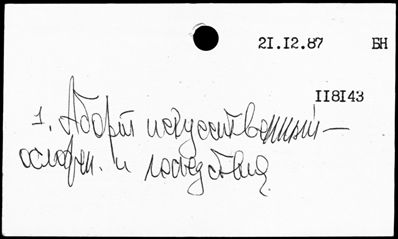 21.12.87 БН
118143
1. Аборт искусственный –
ослож. и последствия